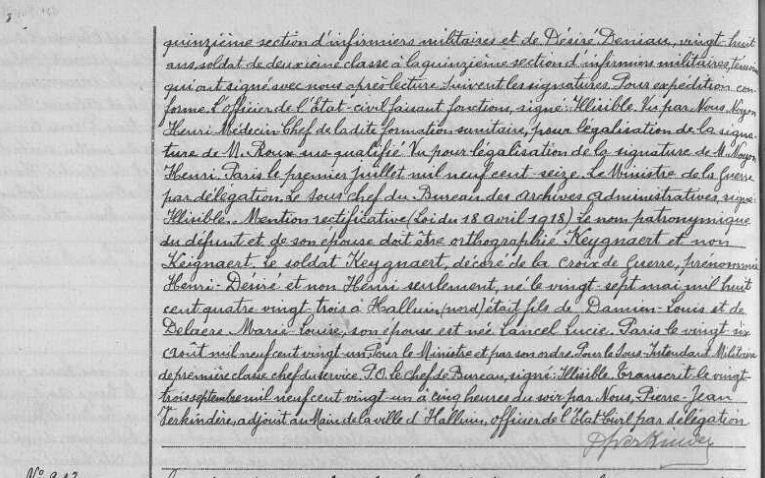 quinzième section d'infirmiers militaires et de Désiré Deniau, vingt-huit
ans, soldat de deuxième classe à la quinzième section d'infirmiers militaires, témoins
qui ont signé avec nous après lecture. Suivent les signatures. Pour expédition con-
forme. L'officier de l'Etat-civil faisant fonctions, signé: Illisible. Vu par Nous, Noyon
Henri Médecin Chef de la dite formation sanitaire, pour légalisation de la signa-
ture de M. Roux sus-qualifié. Vu pour légalisation de la signature de M. Noyon
Henri. Paris le premier juillet mil neuf cent seize. Le Ministre de la Guerre
par délégation. Le sous chef du Bureau des archives administratives, signé:
Illisible. Mention rectificative (Loi du 18 avril 1918) Le nom patronymique
du défunt et de son épouse doit être orthographié Keygnaert et non
Keignaert. Le soldat Keygnaert, décoré de la croix de Guerre, prénommé
Henri-Désiré et non Henri seulement, né le vingt-sept mai mil huit
cent quatre vingt-trois à Halluin (nord) était fils de Damien-Louis et de
Delaere Marie-Louise, son épouse est née Lancel Lucie. Paris le vingt six
août mil neuf cent vingt-un. Pour le Ministre et par son ordre. Pour le Sous-Intendant Militaire
de première classe chef du service. P.O. le chef de Bureau, signé: Illisible. Transcrit le vingt-
trois septembre mil neuf cent vingt-un à cinq heures du soir par Nous, Pierre-Jean
Verkindère, adjoint au Maire de la ville d'Halluin, officier de l'Etat Civil par délégation